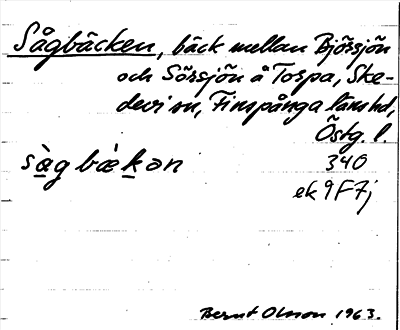 Sågbäcken, bäck mellan Björsjön
och Sörsjön å Torpa, Ske-
devi sn, Finspånga länshd,
Östg. l.
sàg bæ̀kən 340
ek 9F7j
Bernt Olsson 1963.